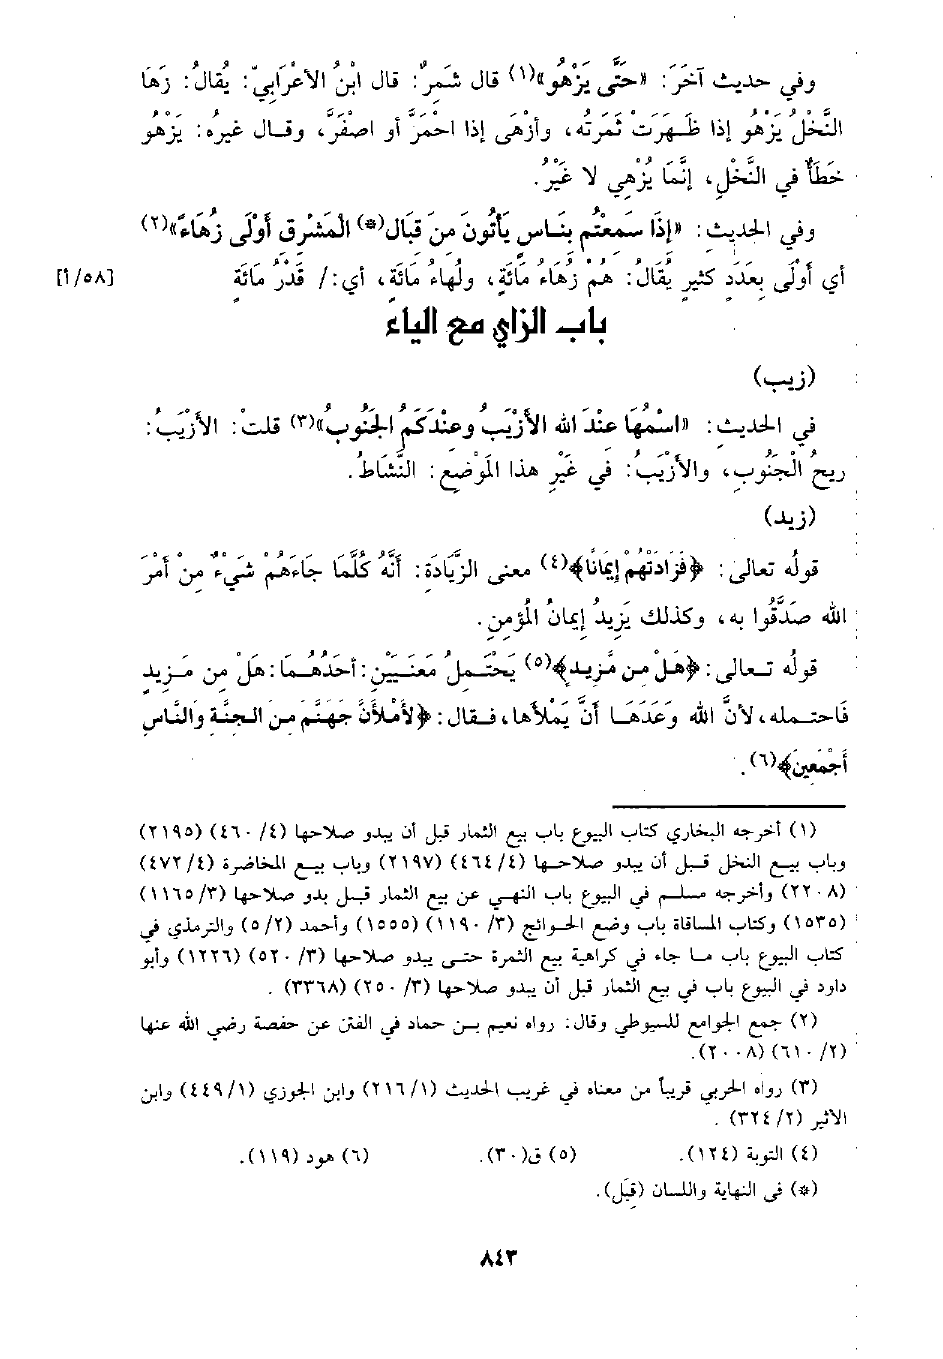 وفي حديث آخَرَ: «حَتَّى يَزْهُو»(١) قال شَمرٌ: قال ابْنُ الأعْرَابيِّ: يُقالُ: زَهَا
النَّخْلُ يَزْهُو إذا ظَهَرَتْ ثَمرَتُه، وأزْهَى إذا احْمَرَّ أو اصْفَرَّ، وقال غيرُه: يَزْهُو
خَطَأٌ في النَّخْلِ، إنَّمَا يُزْهِي لا غَيْرُ.
وفي الحديثِ: «إذَا سَمعتُم بنَاسٍ يَأتُونَ منَ قبَال(*) الْمَشْرِق أَوْلَى زُهَاءَ»(٢)
أي أُولَى بِعَدَدٍ كثيرٍ يُقالُ: هُم زُهَاءُ مَائَةٍ، ولُهاءُ مَائَةٍ، أي:/ قَدْرُ مَائَةٍ [٥٨/أ]
باب الزاي مع الياء
(زيب)
في الحديثِ: «اسْمُهَا عنْدَ الله الأزْيَبُ وعنْدَكَمُ الجَنُوبُ»(٣) قلتْ: الأزْيَبُ:
ريحُ الْجَنُوبِ، والأزْيَبُ: في غَيْرِ هذا المَوْضِعِ: النَّشَاطُ.
(زيد)
قولُه تعالى: ﴿فَزَادَتْهُمْ إيَمَانًا﴾(٤) معنى الزِّيَادَة: أنَّهُ كُلَّمَا جاءَهمُ شَيْءٌ مِنْ أمْرَ
الله صَدَّقُوا به، وكذلك يَزيدُ إيمَانُ المُؤمنِ.
قولُه تعالى: ﴿هَلْ من مَّزيدٍ﴾(٥) يَحْتَملُ مَعْنَيَيْنِ: أحَدُهُمَا: هَلْ من مَزيد
فَاحتمله، لأنَّ الله وَعَدَهَا أنَّ يَمْلأها، فقال: ﴿لأمْلأنَّ جَهنَّم منَ الجنَّة وَالنَّاسِ
أَجْمَعينَ﴾(٦).
(١) أخرجه البخاري كتاب البيوع باب بيع الثمار قبل أن يبدو صلاحها (٤/ ٤٦٠) (٢١٩٥)
وباب بيع النخل قبل أن يبدو صلاحها (٤/ ٤٦٤) (٢١٩٧) وباب بيع المخاضرة (٤/ ٤٧٢)
(٢٢٠٨) وأخرجه مسلم في البيوع باب النهي عن بيع الثمار قبل بدو صلاحها (٣/ ١١٦٥)
(١٥٣٥) وكتاب المساقاة باب وضع الحوائج (٣/ ١١٩٠) (١٥٥٥) وأحمد (٢/ ٥) والترمذي في
كتاب البيوع باب ما جاء في كراهية بيع الثمرة حتى يبدو صلاحها (٣/ ٥٢٠) (١٢٢٦) وأبو
داود في البيوع باب في بيع الثمار قبل أن يبدو صلاحها (٣/ ٢٥٠) (٣٣٦٨) .
(٢) جمع الجوامع للسيوطي وقال: رواه نعيم بن حماد في الفتن عن حفصة رضي الله عنها
(٢/ ٦١٠) (٢٠٠٨).
(٣) رواه الحربي قريباً من معناه في غريب الحديث (١/ ٢١٦) وابن الجوزي (١/ ٤٤٩) وابن
الأثير (٢/ ٣٢٤) .
(٤) التوبة (١٢٤). (٥) ق(٣٠). (٦) هود (١١٩).
(*) في النهاية واللسان (قِبَل).
٨٤٣